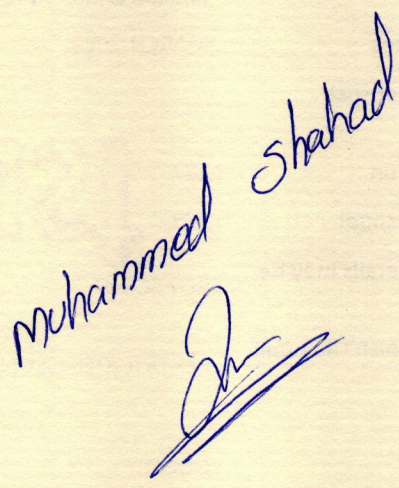 Muhammed Shahad